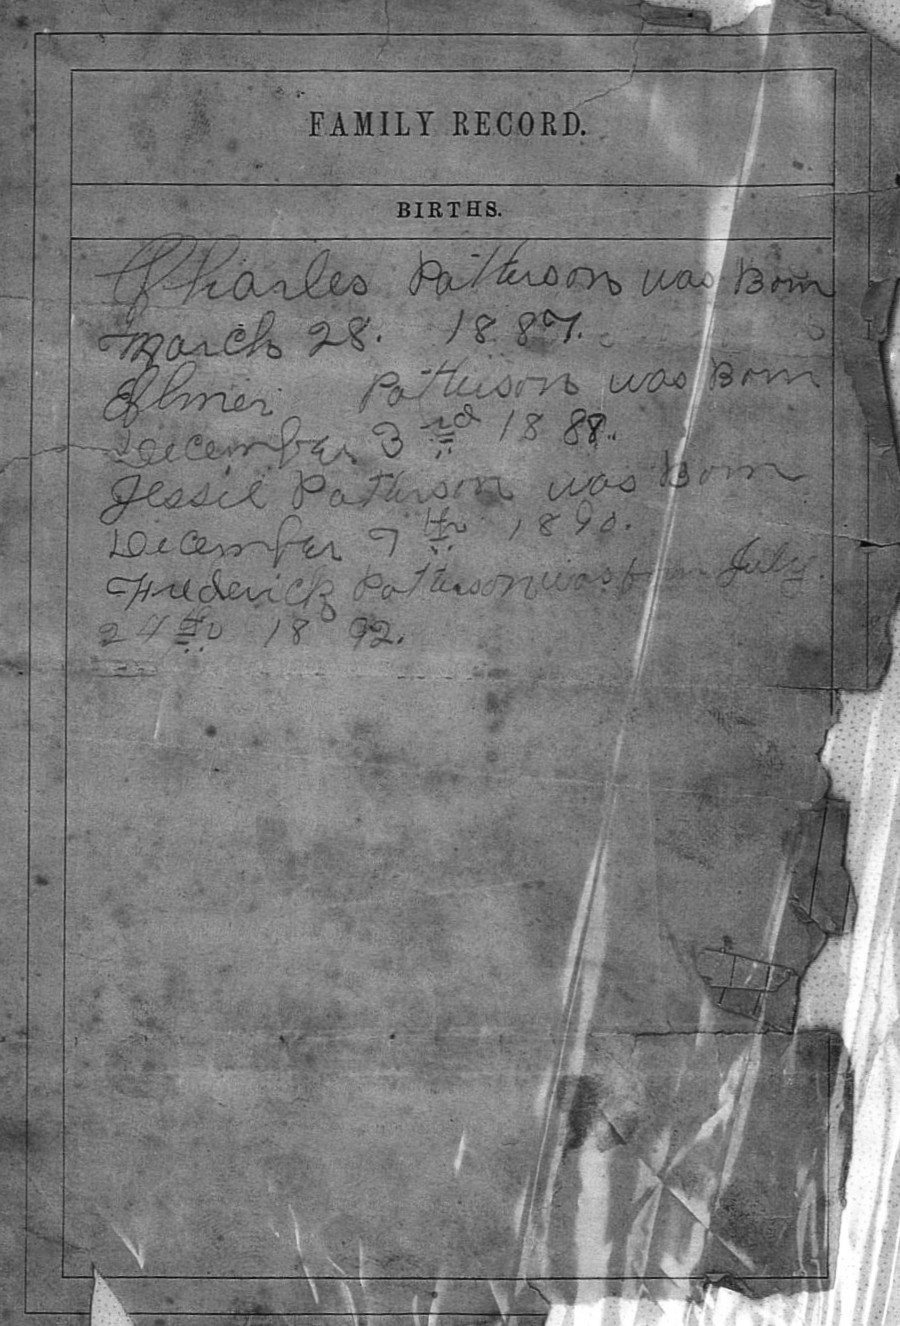 FAMILY RECORD.
BIRTHS.
Charles Patterson was Born
March 28. 1887.
Elmer Patterson was Born
December 3rd 1888.
Jessie Patterson was Born
December 7th 1890.
Frederick Patterson was born July
24th 1892.